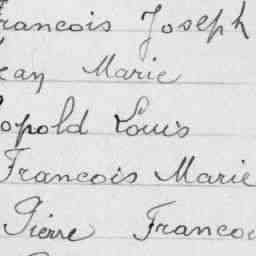 rancois Joseph
ean Marie
opold Louis
Francois Marie
Pierre Francoi